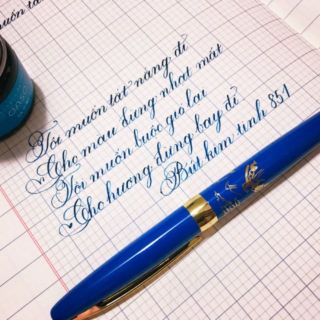 muốn tắ
Tôi muốn tắt nắng đi
Cho màu đừng nhạt mất
Tôi muốn buộc gió lại
Cho hương đừng bay đi
Bút kim tinh 851